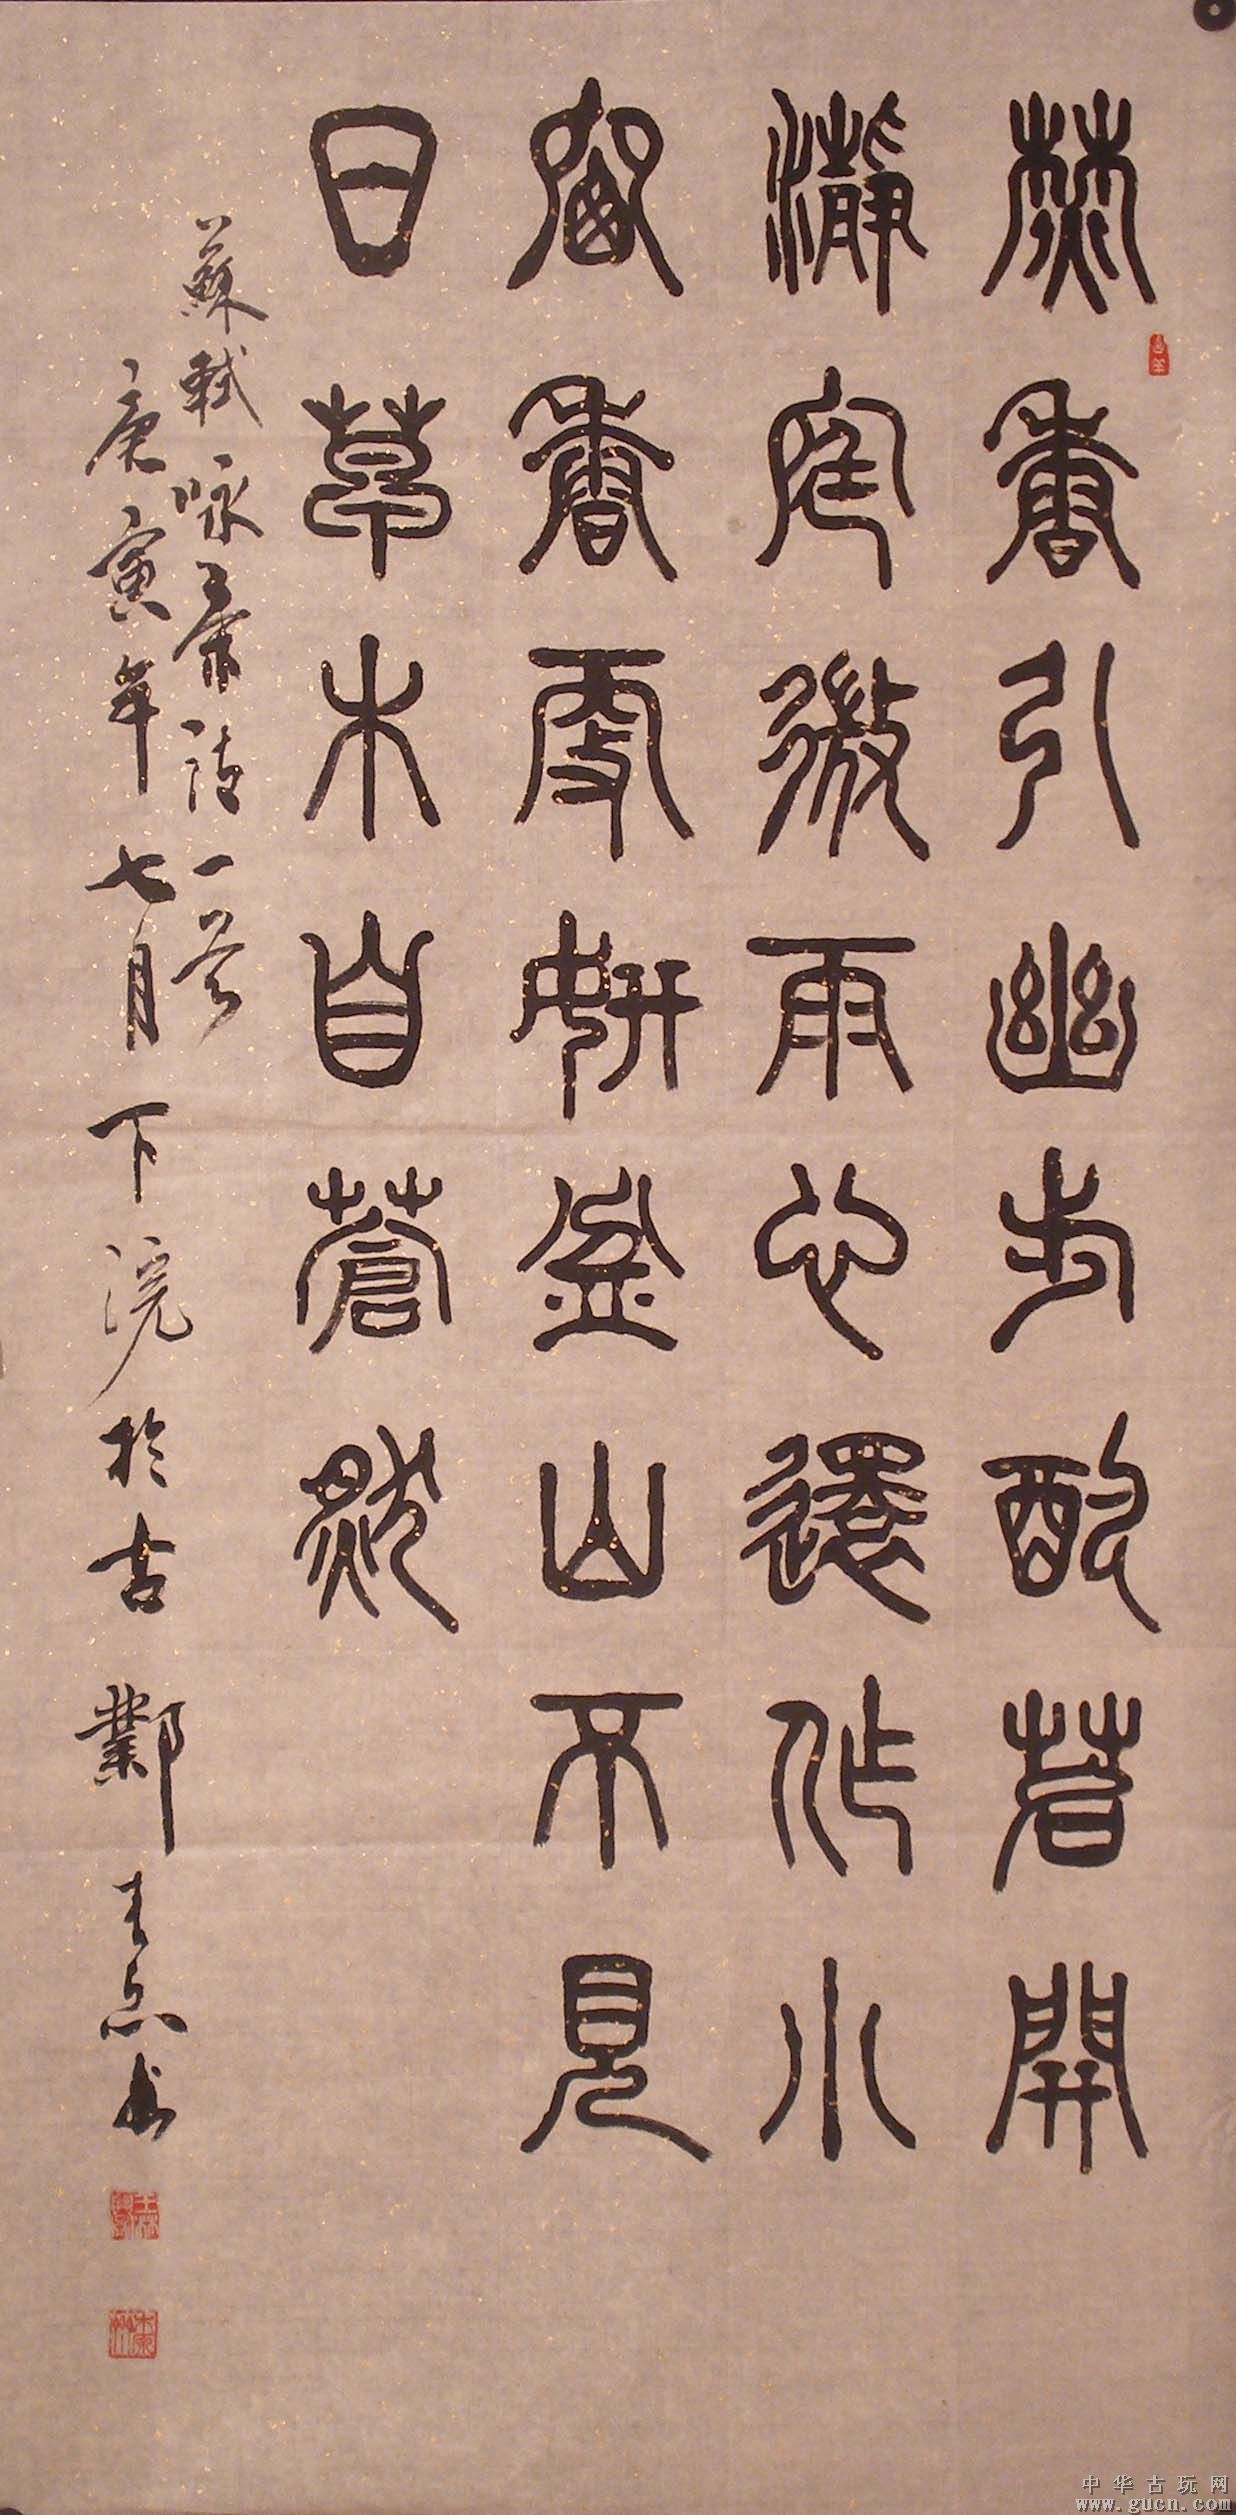 焚香引幽步酌茗開
瀞微雨心還作小
窗香妍盆山不見
日草木自蒼然
蘇軾詠香詩一首
庚寅年七月下浣於古鄴書
中华古玩网
www.gucn.com